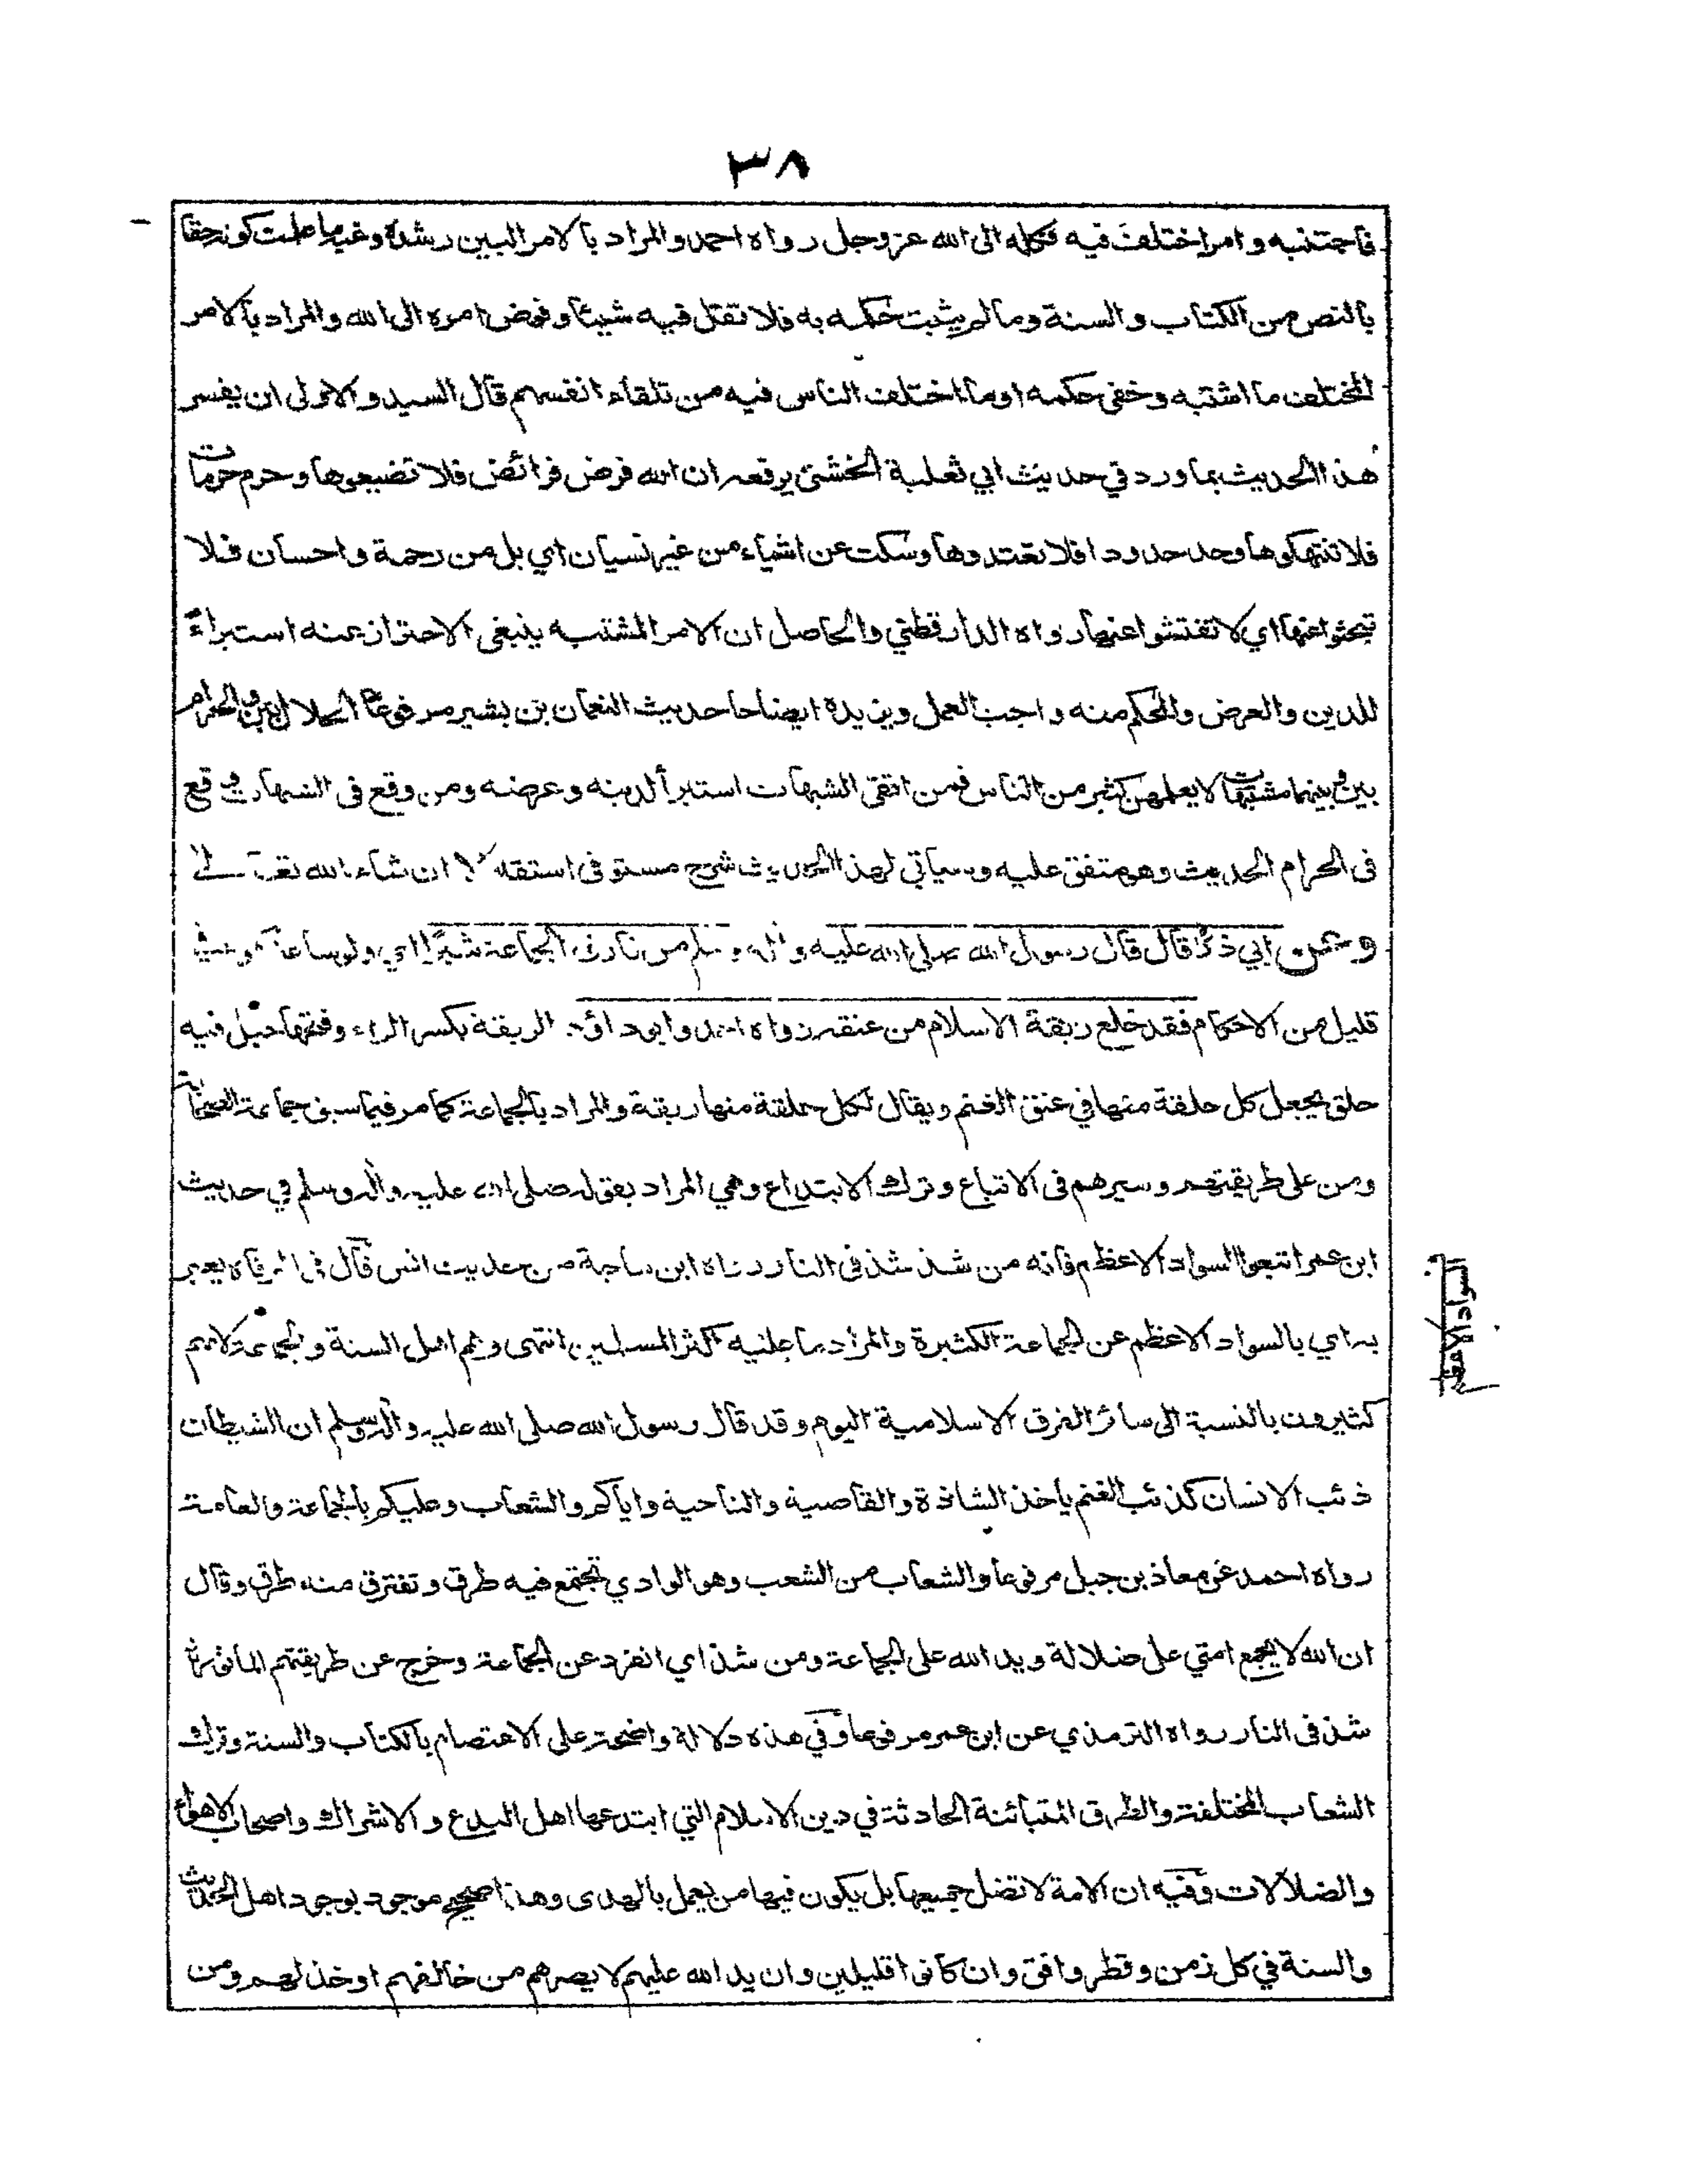 ٣٨
فاجتنبه وامر اختلف فيه فكله الى الله عز وجل رواه احمد والمراد بالامر البين رشده وغيه ما علمت كونه حقا
بالنص من الكتاب والسنة وما لم يثبت حكمه به فلا تقل فيه شيئا وفوض امره الى الله والمراد بالامر
المختلف ما اشتبه وخفي حكمه او ما اختلف الناس فيه من تلقاء انفسهم قال السيد والاولى ان يفسر
هذا الحديث بما ورد في حديث ابي ثعلبة الخشني يرفعه ان الله فرض فرائض فلا تضيعوها وحرم حرمات
فلا تنتهكوها وحد حدودا فلا تعتدوها وسكت عن اشياء من غير نسيان اي بل من رحمة واحسان فلا
تبحثوا عنها اي لا تفتشوا عنها رواه الدارقطني والحاصل ان الامر المشتبه ينبغي الاحتراز عنه استبراءً
للدين والعرض والمحكم منه واجب العمل ويزيده ايضاحا حديث النعمان بن بشير مرفوعا الحلال بين والحرام
بين وبينهما مشتبهات لا يعلمهن كثير من الناس فمن اتقى الشبهات استبرأ لدينه وعرضه ومن وقع في الشبهات وقع
في الحرام الحديث وهو متفق عليه وسياتي لهذا الحديث شرح مستوفى استقلالا ان شاء الله تعالى
وعن ابي ذر قال قال رسول الله صلى الله عليه واله وسلم من فارق الجماعة شبرًا اي ولو ساعة او في
قليل من الاحكام فقد خلع ربقة الاسلام من عنقه رواه احمد وابو داؤد الربقة بكسر الراء وفتحها حبل فيه
حلق يجعل كل حلقة منها في عنق الغنم ويقال لكل حلقة منها ربقة والمراد بالجماعة كما مر فيما سبق جماعة الصحابة
ومن على طريقتهم وسيرهم في الاتباع وترك الابتداع وهي المراد بقوله صلى الله عليه واله وسلم في حديث
ابن عمر اتبعوا السواد الاعظم فانه من شذ شذ في النار رواه ابن ماجة من حديث انس قال في المرقاة يعبر
به اي بالسواد الاعظم عن الجماعة الكثيرة والمراد ما عليه اكثر المسلمين انتهى وهم اهل السنة والجماعة لانهم
كثيرون بالنسبة الى سائر الفرق الاسلامية اليوم وقد قال رسول الله صلى الله عليه واله وسلم ان الشيطان
ذئب الانسان كذئب الغنم ياخذ الشاذة والقاصية والناحية واياكم والشعاب وعليكم بالجماعة والعامة
رواه احمد عن معاذ بن جبل مرفوعا والشعاب من الشعب وهو الوادي تجتمع فيه طرق وتفترق منه طرق وقال
ان الله لا يجمع امتي على ضلالة ويد الله على الجماعة ومن شذ اي انفرد عن الجماعة وخرج عن طريقتهم الماثورة
شذ في النار رواه الترمذي عن ابن عمر مرفوعا وفي هذه دلالة واضحة على الاعتصام بالكتاب والسنة وترك
الشعاب المختلفة والطرق المتبائنة الحادثة في دين الاسلام التي ابتدعها اهل البدع والاشراك واصحاب الاهواء
والضلالات وفيه ان الامة لا تضل جميعها بل يكون فيها من يعمل بالهدى وهذا صحيح موجود بوجود اهل الحديث
والسنة في كل زمن وقطر وافق وان كانوا قليلين وان يد الله عليهم لا يضرهم من خالفهم او خذلهم ومن
السواد الاعظم